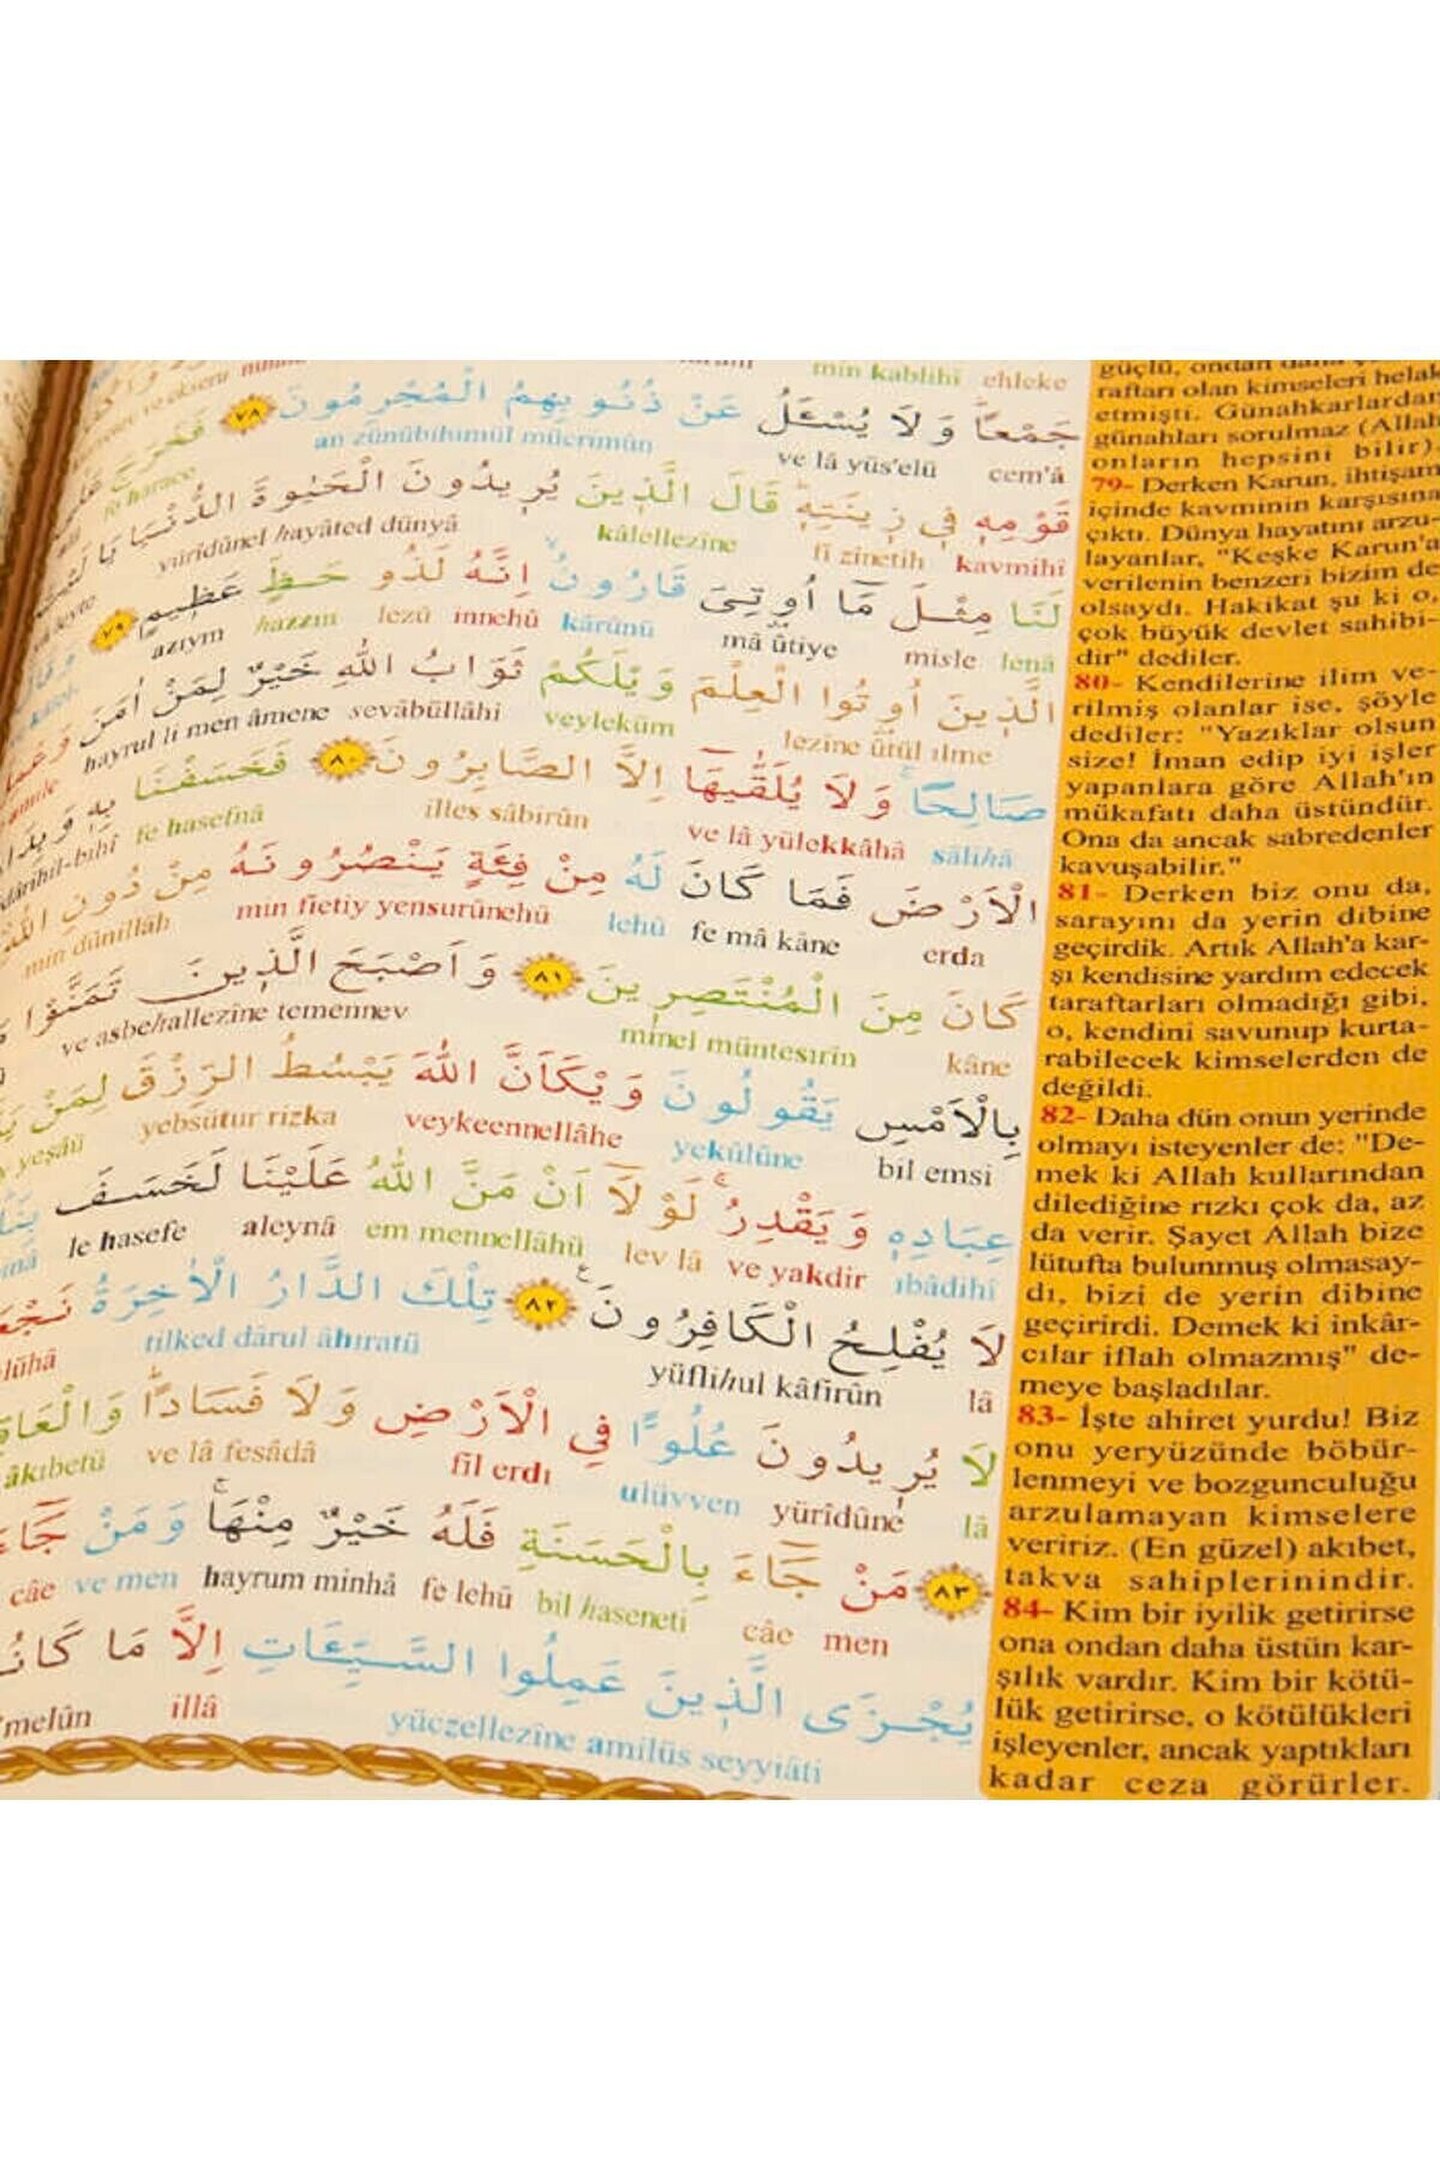 جَمْعًا وَلَا يُسْـَٔلُ عَنْ ذُنُوبِهِمُ الْمُجْرِمُونَ ٧٨
cem'â ve lâ yüs'elü an zünûbihimül mücrimûn
قَوْمِهٖ فٖي زٖينَتِهٖ قَالَ الَّذٖينَ يُرٖيدُونَ الْحَيٰوةَ الدُّنْيَا يَا
kavmihî fî zînetih kâlellezîne yürîdûnel hayâted dünyâ
لَنَا مِثْلَ مَا اُوتِيَ قَارُونُ اِنَّهُ لَذُو حَظٍّ عَظٖيمٍ ٧٩
lenâ misle mâ ûtiye kârûnü innehû lezû hazzın azıym
الَّذٖينَ اُوتُوا الْعِلْمَ وَيْلَكُمْ ثَوَابُ اللّٰهِ خَيْرٌ لِمَنْ اٰمَنَ
lezîne ûtül ılme veyleküm sevâbüllâhi hayrul li men âmene
صَالِحًا وَلَا يُلَقّٰيهَا اِلَّا الصَّابِرُونَ ٨٠ فَخَسَفْنَا
sâlihâ ve lâ yülekkâhâ illes sâbirûn fe hasefnâ
الْاَرْضَ فَمَا كَانَ لَهُ مِنْ فِئَةٍ يَنْصُرُونَهُ مِنْ دُونِ اللّٰهِ
erda fe mâ kâne lehû min fietiy yensurûnehû min dûnillâh
كَانَ مِنَ الْمُنْتَصِرٖينَ ٨١ وَاَصْبَحَ الَّذٖينَ تَمَنَّوْا
kâne minel müntesırîn ve asbehallezîne temennev
بِالْاَمْسِ يَقُولُونَ وَيْكَاَنَّ اللّٰهَ يَبْسُطُ الرِّزْقَ لِمَنْ
bil emsi yekûlûne veykeennellâhe yebsütur rizka yeşâü
عِبَادِهٖ وَيَقْدِرُ لَوْلَا اَنْ مَنَّ اللّٰهُ عَلَيْنَا لَخَسَفَ
ıbâdihî ve yakdir lev lâ em mennellâhü aleynâ le hasefe
لَا يُفْلِحُ الْكَافِرُونَ ٨٢ تِلْكَ الدَّارُ الْاٰخِرَةُ
lâ yüflihul kâfirûn tilked dârul âhıratü
لَا يُرٖيدُونَ عُلُوًّا فِي الْاَرْضِ وَلَا فَسَادًا
lâ yürîdûne ulüvven fil erdı ve lâ fesâdâ âkıbetü
٨٣ مَنْ جَٓاءَ بِالْحَسَنَةِ فَلَهُ خَيْرٌ مِنْهَا وَمَنْ
men câe bil haseneti fe lehû hayrum minhâ ve men câe
يُجْزَى الَّذٖينَ عَمِلُوا السَّيِّـَٔاتِ اِلَّا مَا
yüczellezîne amilüs seyyiâti illâ
raftarı olan kimseleri helak
etmişti. Günahkarlardan
günahları sorulmaz (Allah
onların hepsini bilir).
79- Derken Karun, ihtişam
içinde kavminin karşısına
çıktı. Dünya hayatını arzu-
layanlar, "Keşke Karun'a
verilenin benzeri bizim de
olsaydı. Hakikat şu ki o,
çok büyük devlet sahibi-
dir" dediler.
80- Kendilerine ilim ve-
rilmiş olanlar ise, şöyle
dediler: "Yazıklar olsun
size! İman edip iyi işler
yapanlara göre Allah'ın
mükafatı daha üstündür.
Ona da ancak sabredenler
kavuşabilir."
81- Derken biz onu da,
sarayını da yerin dibine
geçirdik. Artık Allah'a kar-
şı kendisine yardım edecek
taraftarları olmadığı gibi,
o, kendini savunup kurta-
rabilecek kimselerden de
değildi.
82- Daha dün onun yerinde
olmayı isteyenler de: "De-
mek ki Allah kullarından
dilediğine rızkı çok da, az
da verir. Şayet Allah bize
lütufta bulunmuş olmasay-
dı, bizi de yerin dibine
geçirirdi. Demek ki inkâr-
cılar iflah olmazmış" de-
meye başladılar.
83- İşte ahiret yurdu! Biz
onu yeryüzünde böbür-
lenmeyi ve bozgunculuğu
arzulamayan kimselere
veririz. (En güzel) akıbet,
takva sahiplerinindir.
84- Kim bir iyilik getirirse
ona ondan daha üstün kar-
şılık vardır. Kim bir kötü-
lük getirirse, o kötülükleri
işleyenler, ancak yaptıkları
kadar ceza görürler.